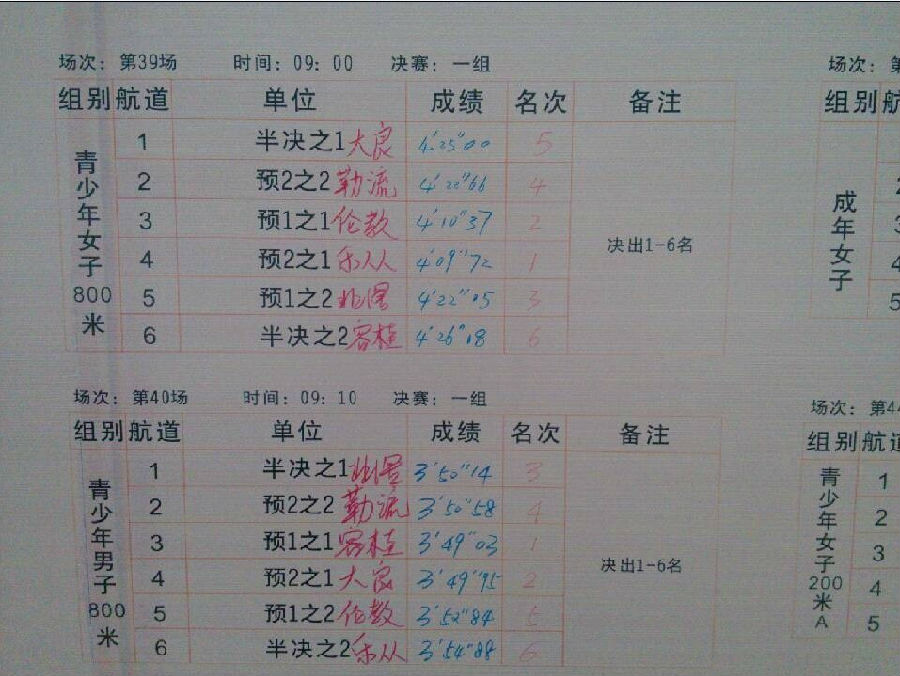 场次：第39场 时间：09：00 决赛：一组
组别 航道 单位 成绩 名次 备注
青少年女子800米
1 半决之1 大良 4'25"00 5
2 预2之2 勒流 4'22"66 4
3 预1之1 伦教 4'10"37 2
4 预2之1 乐从 4'09"72 1
5 预1之2 北滘 4'22"05 3
6 半决之2 容桂 4'26"18 6
决出1-6名
场次：第40场 时间：09：10 决赛：一组
组别 航道 单位 成绩 名次 备注
青少年男子800米
1 半决之1 北滘 3'50"14 3
2 预2之2 勒流 3'50"58 4
3 预1之1 容桂 3'49"03 1
4 预2之1 大良 3'49"95 2
5 预1之2 伦教 3'52"84 5
6 半决之2 乐从 3'54"88 6
决出1-6名
场次：
组别
成年女子
2
3
4
5
场次：第44
组别 航道
青少年女子200米A
1
2
3
4
5